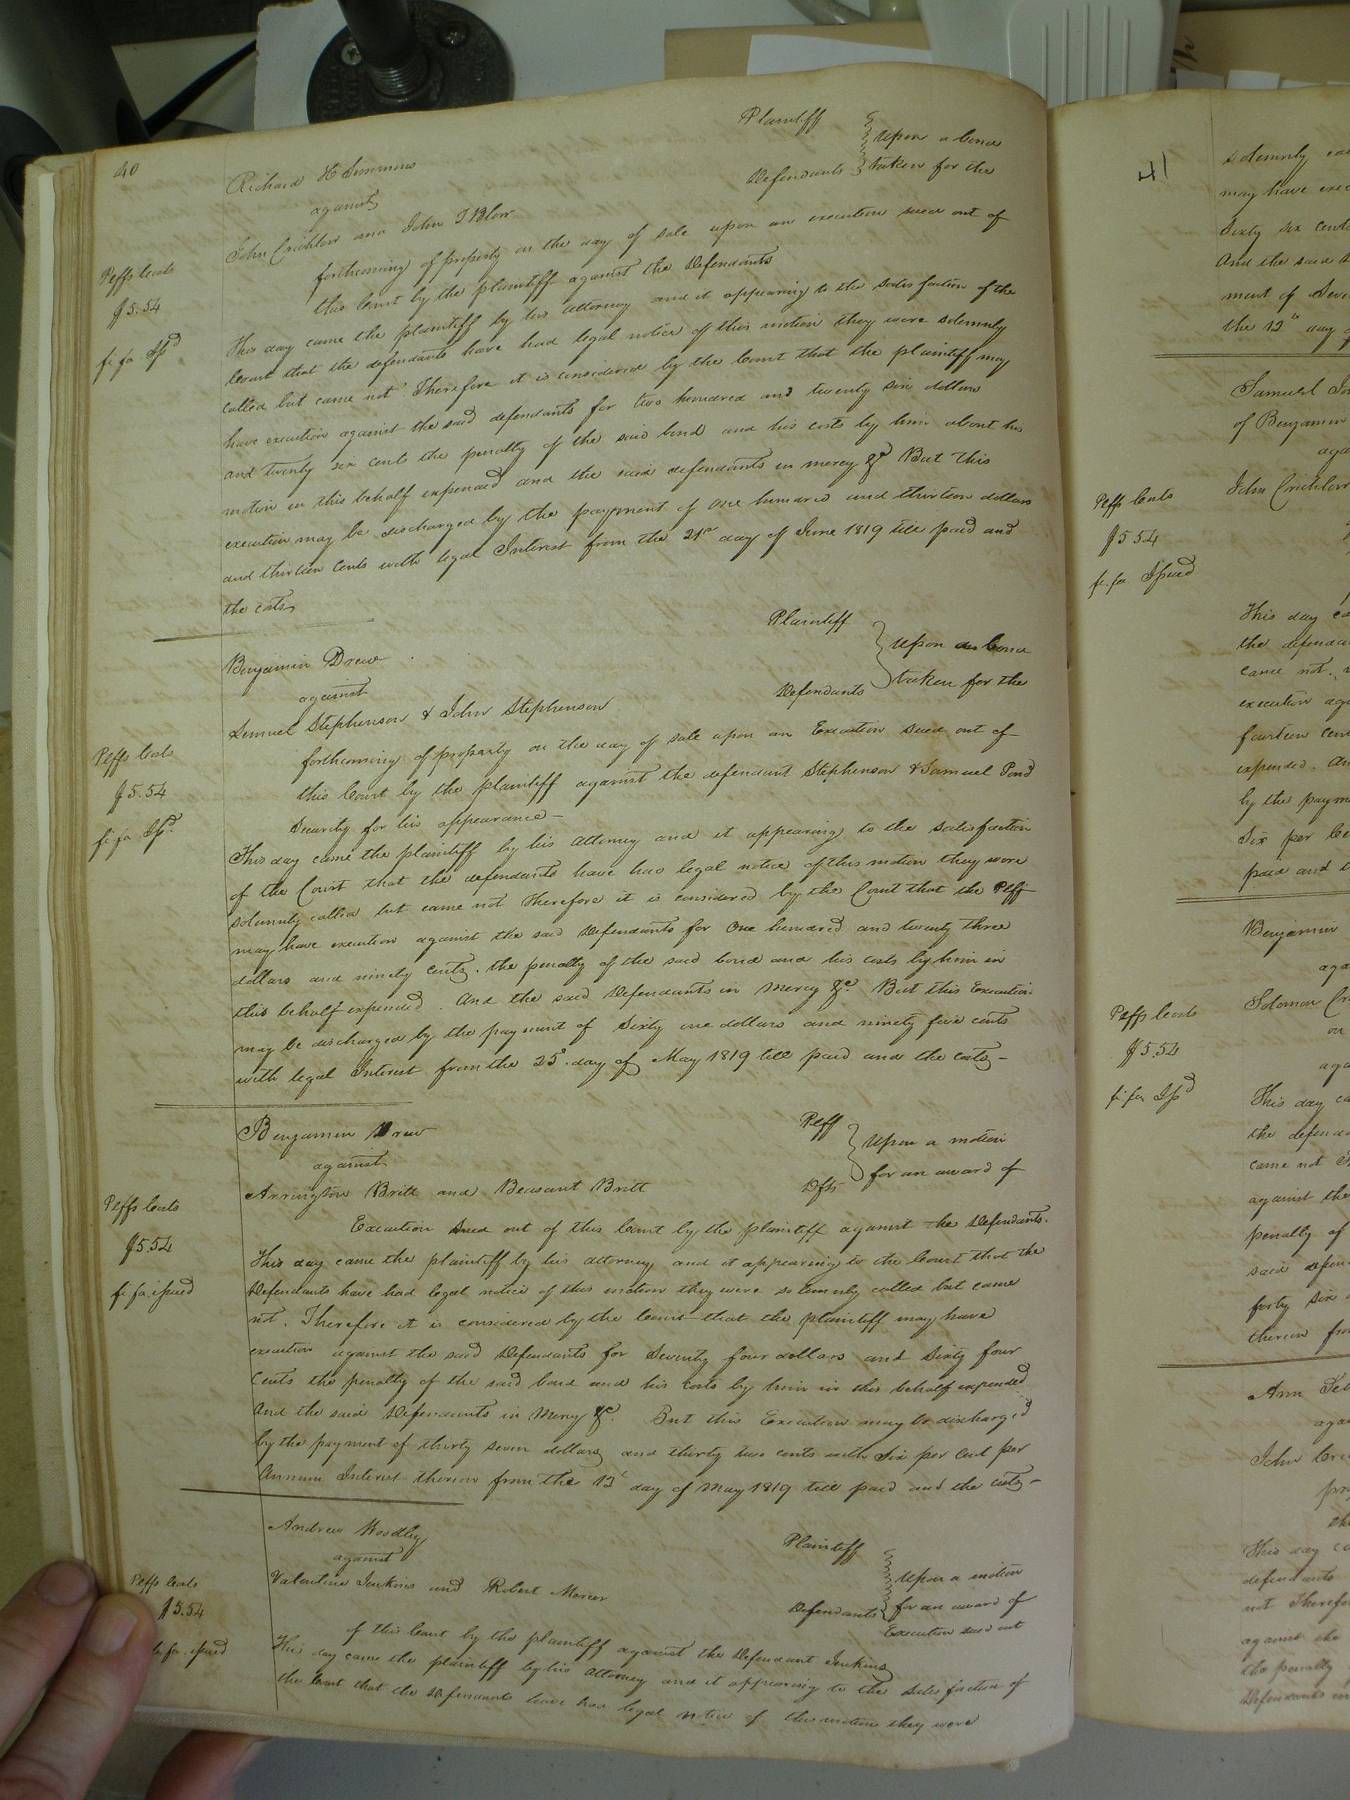 40
Richard H Simmons Plaintiff
against
John Crichlow and John T Blow Defendants
Upon a bond
taken for the
forthcoming of property on the day of sale upon an execution sued out of
this Court by the plaintiff against the Defendants
Plffs Costs
$5.54
fi. fa Issd
This day came the plaintiff by his attorney and it appearing to the satisfaction of the
Court that the defendants have had legal notice of this motion they were solemnly
called but came not Therefore it is considered by the Court that the plaintiff may
have execution against the said defendants for two hundred and twenty six dollars
and twenty six cents the penalty of the said bond and his costs by him about his
motion in this behalf expended and the said defendants in mercy &c But this
execution may be discharged by the payment of One hundred and thirteen dollars
and thirteen Cents with legal Interest from the 21st day of June 1819 till paid and
the costs
Benjamin Drew Plaintiff
against
Lemuel Stephenson & John Stephenson Defendants
Upon a bond
taken for the
forthcoming of property on the day of sale upon an Execution sued out of
this Court by the plaintiff against the defendant Stephenson & Samuel Pond
Security for his appearance —
Plffs Costs
$5.54
fi. fa Issd
This day came the plaintiff by his attorney and it appearing to the satisfaction
of the Court that the defendants have had legal notice of this motion they were
solemnly called but came not Therefore it is considered by the Court that the Plff
may have execution against the said Defendants for One hundred and twenty three
dollars and ninety Cents. the penalty of the said bond and his costs by him in
this behalf expended. And the said Defendants in Mercy &c. But this Execution
may be discharged by the payment of Sixty one dollars and ninety five cents
with legal Interest from the 25th. day of May 1819 till paid and the costs —
Benjamin Drew Plff
against
Arrington Britt and Beasant Britt Dfts
Upon a motion
for an award of
Execution Sued out of this Court by the plaintiff against the Defendants.
Plffs Costs
$5.54
fi. fa. issued
This day came the plaintiff by his attorney and it appearing to the Court that the
Defendants have had legal notice of this motion they were solemnly called but came
not. Therefore it is considered by the Court that the plaintiff may have
execution against the said Defendants for Seventy four dollars and Sixty four
Cents the penalty of the said bond and his costs by him in this behalf expended
And the said Defendants in Mercy &c. But this Execution may be discharged
by the payment of thirty seven dollars and thirty two cents with Six per Cent per
Annum Interest thereon from the 13th day of May 1819 till paid and the costs —
Andrew Woodley Plaintiff
against
Valentine Jenkins and Robert Mercer Defendants
Upon a motion
for an award of
Execution sued out
of this Court by the plaintiff against the Defendant Jenkins
Plffs Costs
$5.54
fi. fa. issued
This day came the plaintiff by his attorney and it appearing to the satisfaction of
the Court that the Defendants have had legal notice of this motion they were
41
solemnly
may have
Sixty six cents
And the said
ment of
the 12th day
Samuel
of Benjamin
John Crichlow
Plffs Costs
$5 54
fi. fa Issued
This day
the
came not.
execution
fourteen
expended.
by the
Six per
paid and
Benjamin
Solomon
on
Plffs Costs
$5.54
fi fa Issd
This day
the
came not
against the
penalty of
said
forty six
therein
Ann
John
This day
defendants
not
against the
the penalty
Defendants